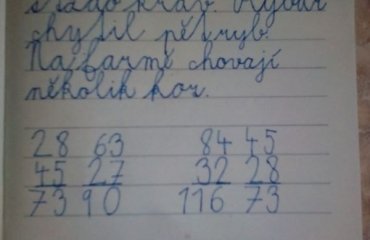 stádo krav. Rybář
chytil pět ryb.
Na farmě chovají
několik koz.
28 63 84 45
45 27 32 28
73 90 116 73